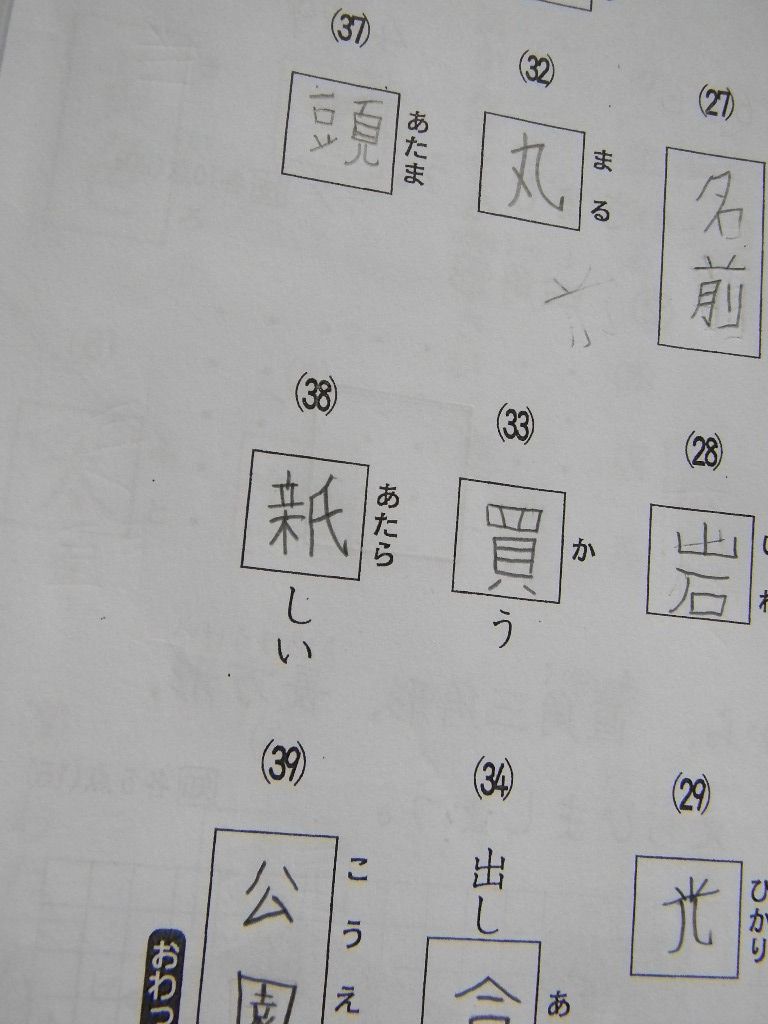 (27)
名前
(28)
岩
(29)
ひかり
光
(32)
まる
丸
(33)
か
買う
(34)
あ
出し合
(37)
あたま
頭
(38)
あたら
新しい
(39)
こうえ
公園
おわ